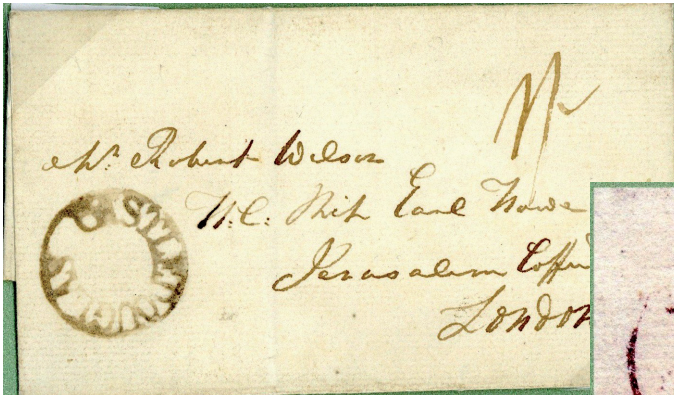 Mr. Robert Wilson
H.C. Ship Earl Howe
Jerusalem Coffe
London
CASTLEDOUGLAS